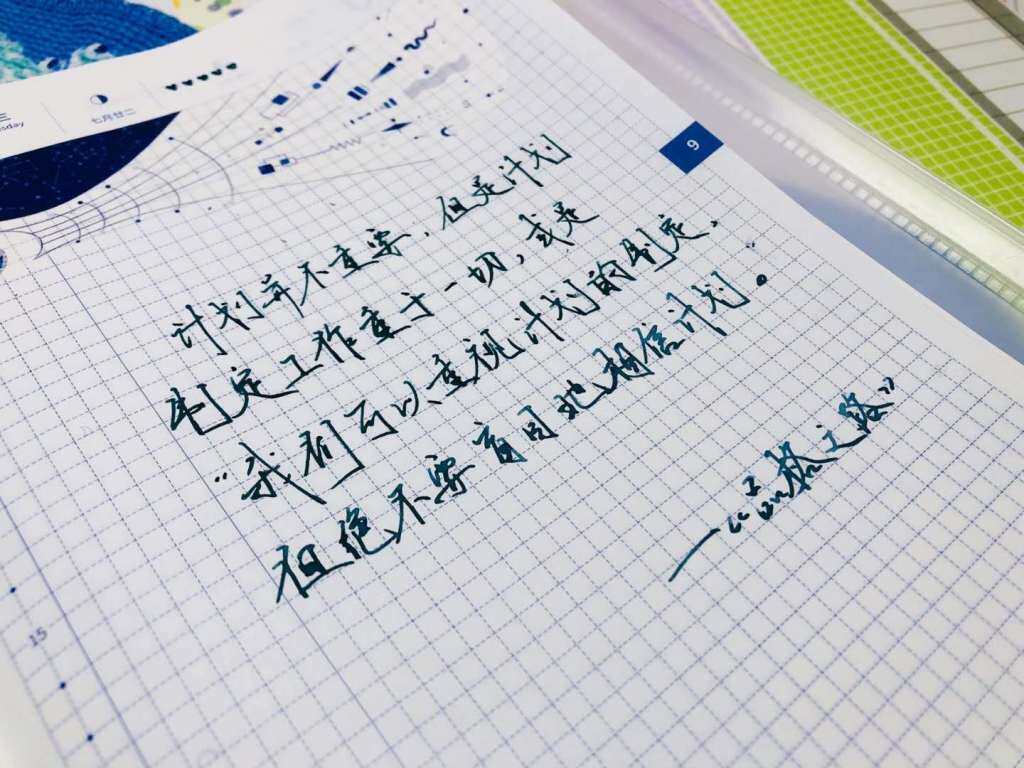 三
sday
七月廿二
9
计划并不重要,但是计划
制定工作重于一切,或是
“我们可以重视计划的制定,
但绝不要盲目地相信计划。
—“品格之路”
15